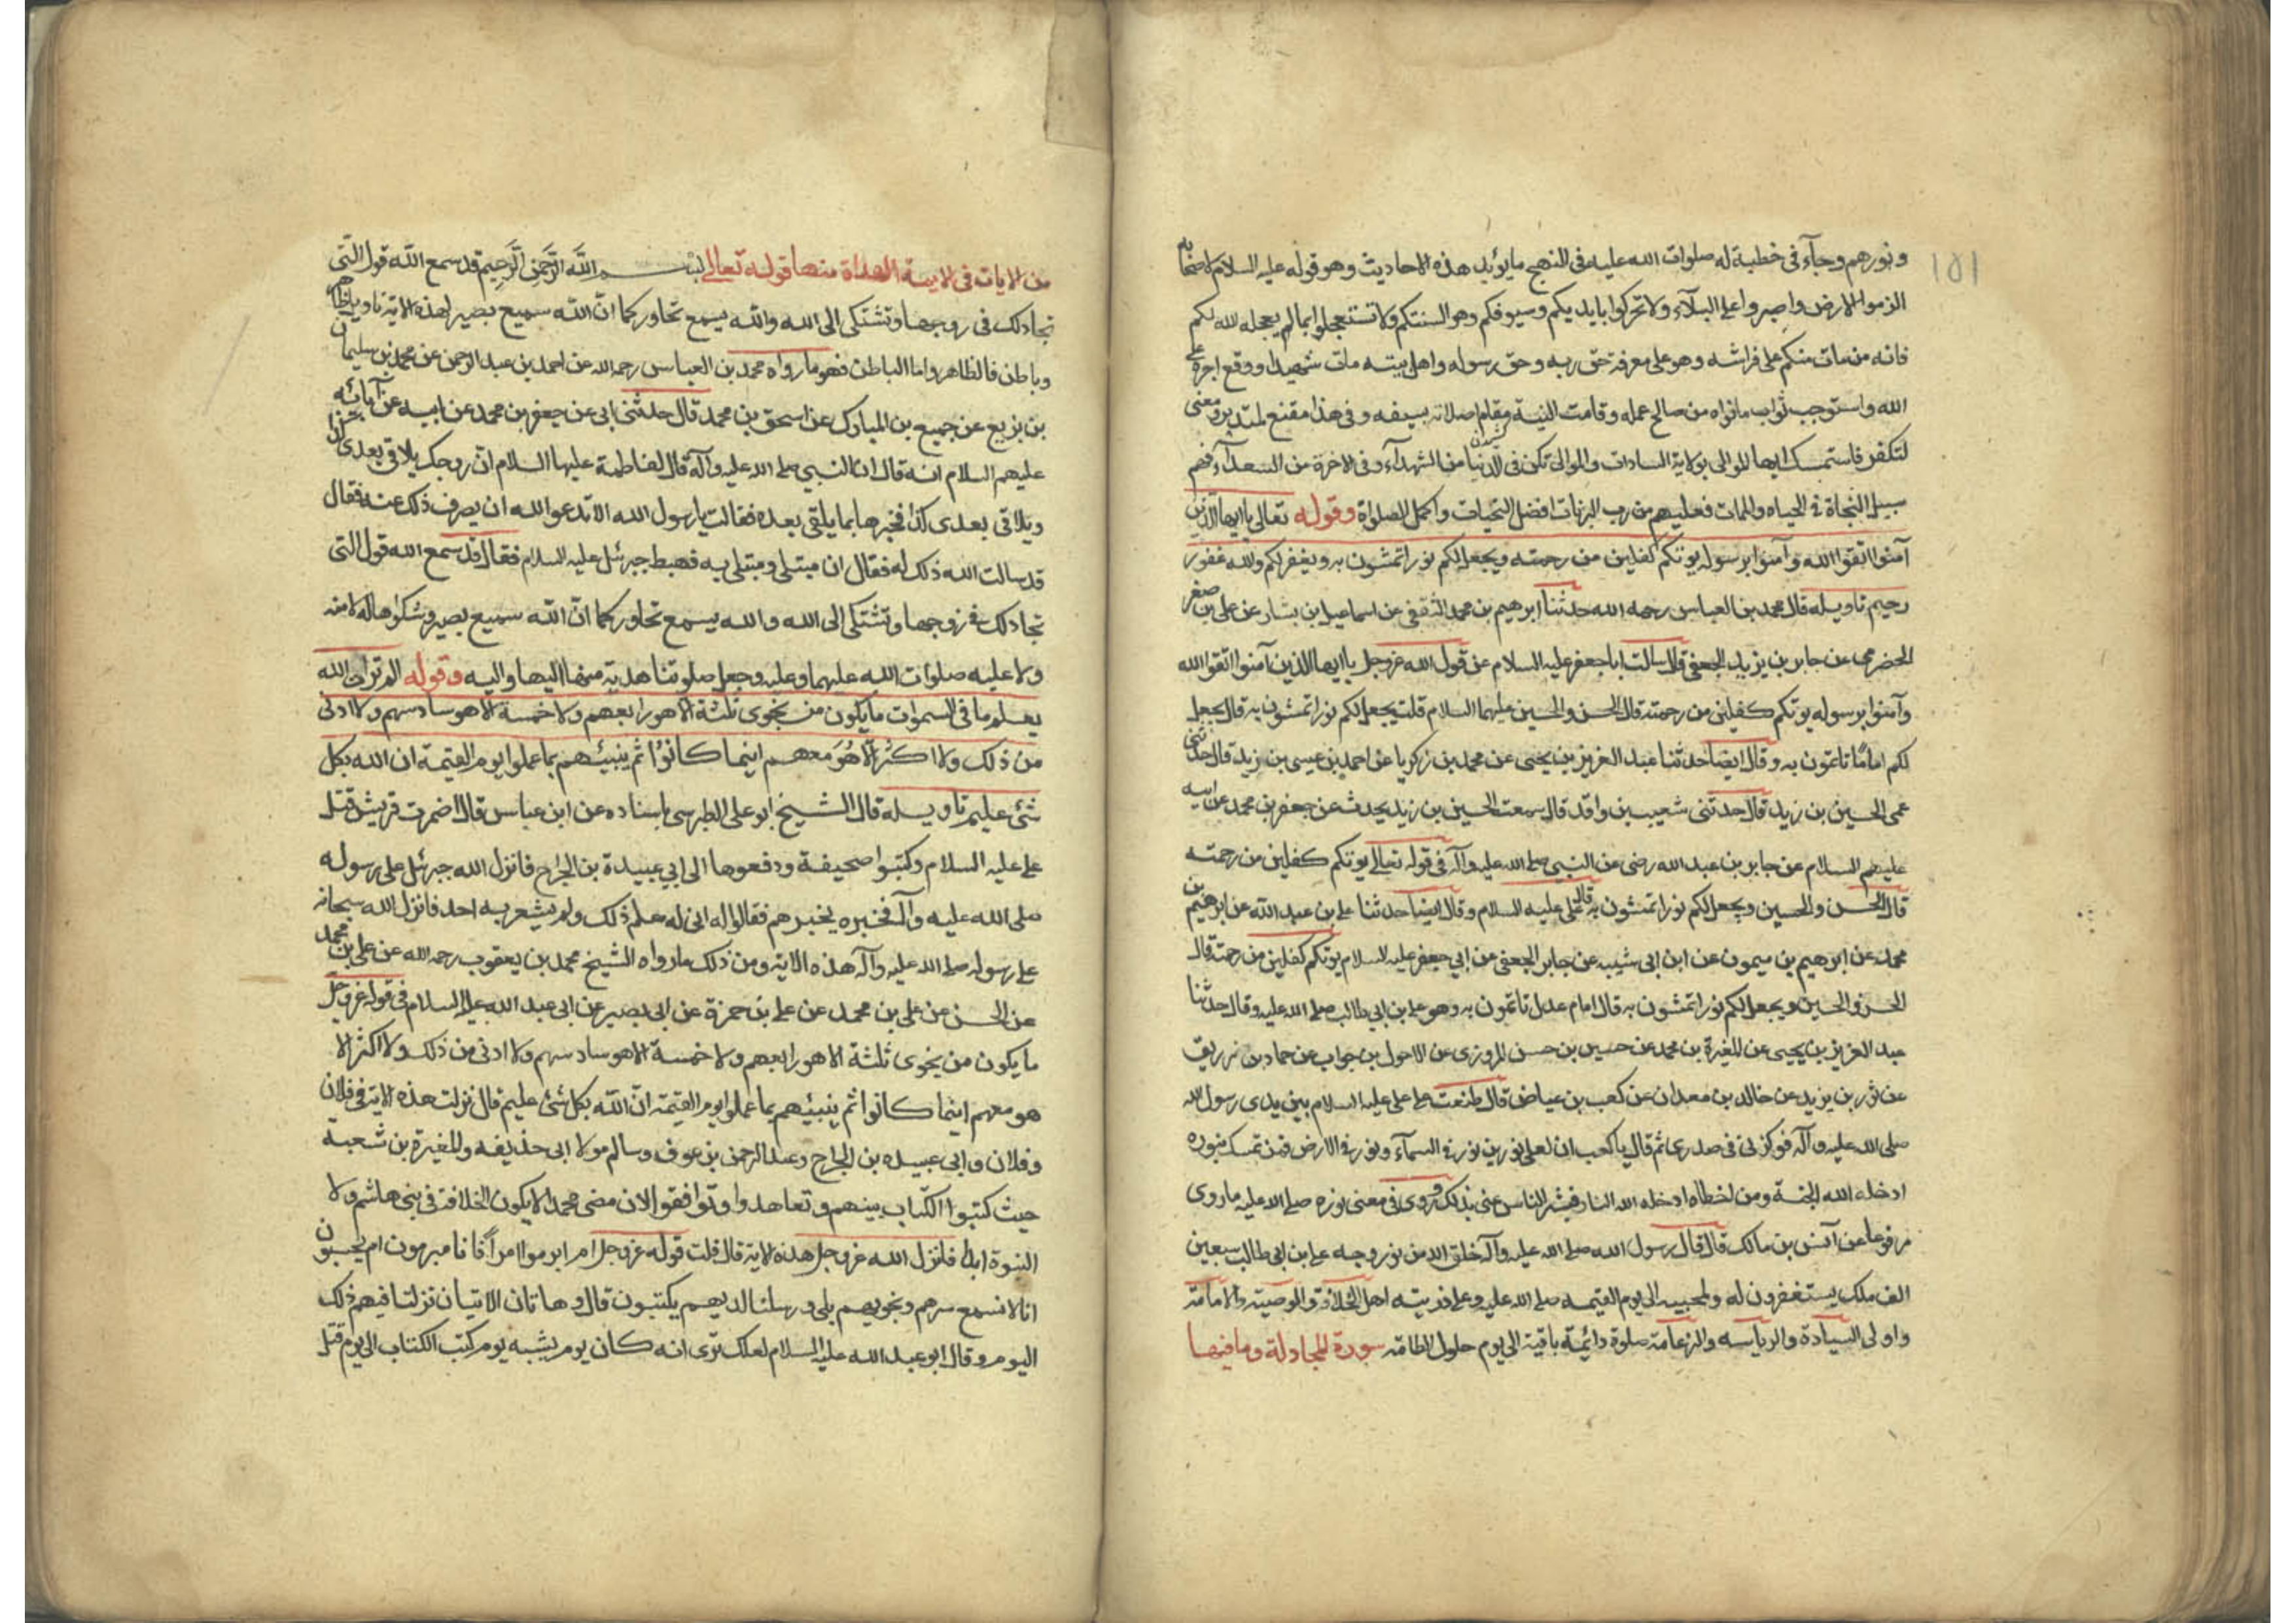 ١٥١
ونورهم وجآء في خطبة له صلوات الله عليه في النهج ما يؤيد هذه الاحاديث وهو قوله عليه السلام لاصحابه
الزموا الارض واصبروا على البلآء ولا تحركوا بايديكم وسيوفكم وهو السنتكم ولا تستعجلوا بما لم يعجله الله لكم
فانه من مات منكم على فراشه وهو على معرفة حق ربه وحق رسوله واهل بيته مات شهيدا ووقع اجره على
الله واستوجب ثواب ما نواه من صالح عمله وقامت النية مقام اصلاته بسيفه وفي هذا مقنع لمتدبر ومعنى
لتكفر فاستمسك ايها الموالي بولاية السادات والموالي تكن في الدنيا من الشهدآء وفي الاخرة من السعدآء فهم
سبيل النجاة في الحياه والممات فعليهم من رب البريات افضل التحيات واكمل الصلواة وقوله تعالى يا ايها الذين
آمنوا اتقوا الله وآمنوا برسوله يوتكم كفلين من رحمته ويجعل لكم نورا تمشون به ويغفر لكم والله غفور
رحيم تاويله قال محمد بن العباس رحمه الله حدثنا ابرهيم بن محمد الثقفي عن اسماعيل بن بشار عن علي بن صغر
الحضرمي عن جابر بن يزيد الجعفي قال سالت ابا جعفر عليه السلام عن قول الله عز وجل يا ايها الذين آمنوا اتقوا الله
وآمنوا برسوله يوتكم كفلين من رحمته قال الحسن والحسين عليهما السلام قلت يجعل لكم نورا تمشون به قال يجعل
لكم اماما تاتمون به وقال ايضا حدثنا عبد العزيز بن يحيى عن محمد بن زكريا عن احمد بن عيسى بن زيد قال حدثني
عمي الحسين بن زيد قال حدثني شعيب بن واقد قال سمعت الحسين بن زيد يحدث عن جعفر بن محمد عن ابيه
عليهم السلام عن جابر بن عبد الله رضى عن النبي صلى الله عليه وآله في قوله تعالى يوتكم كفلين من رحمته
قال الحسن والحسين ويجعل لكم نورا تمشون به قال علي عليه السلام وقال ايضا حدثنا علي بن عبد الله عن ابرهيم بن
محمد عن ابرهيم بن ميمون عن ابن ابي شيبه عن جابر الجعفي عن ابي جعفر عليه السلام يوتكم كفلين من رحمته قال
الحسن والحسين ويجعل لكم نورا تمشون به قال امام عدل تاتمون به وهو علي بن ابي طالب صلى الله عليه وقال حدثنا
عبد العزيز بن يحيى عن المغيرة بن محمد عن حسين بن حسن المروزي عن الاحول بن جواب عن حماد بن زريق
عن ثور بن يزيد عن خالد بن معدان عن كعب بن عياض قال طعنت على علي عليه السلام بين يدي رسول الله
صلى الله عليه وآله فوكزني في صدري ثم قال يا كعب ان لعلي نورين نور في السمآء ونور في الارض فمن تمسك بنوره
ادخله الله الجنة ومن اخطاه ادخله الله النار فبشر الناس عني بذلك وروى في معنى نوره صلى الله عليه ما روى
مرفوعا عن آنس بن مالك قال قال رسول الله صلى الله عليه وآله خلق الله من نور وجه علي بن ابي طالب سبعين
الف ملك يستغفرون له ولمحبيه الى يوم القيمه صلى الله عليه وعلى ذريته اهل الخلافة والوصية والامامة
واولى السيادة والرياسه والزعامة صلوة دائمة باقية الى يوم حلول الطامه سورة المجادلة وما فيها
من الايات في الايمة الهداة منها قوله تعالى بسم الله الرحمن الرحيم قد سمع الله قول التي
تجادلك في زوجها وتشتكي الى الله والله يسمع تحاوركما ان الله سميع بصير لهذه الاية تاويل ظاهر
وباطن فالظاهر واما الباطن فهو ما رواه محمد بن العباس رحمه الله عن احمد بن عبد الرحمن عن محمد بن سليمان
بن بزيع عن جميع بن المبارك عن اسحق بن محمد قال حدثني ابي عن جعفر بن محمد عن ابيه عن آبائه
عليهم السلام انه قال ان النبي صلى الله عليه وآله قال لفاطمة عليها السلام ان زوجك يلاقي بعدي كذا
ويلاقي بعدي كذا فخبرها بما يلقى بعده فقالت يا رسول الله الا تدعو الله ان يصرف ذلك عنه فقال
قد سالت الله ذلك له فقال ان مبتلى ومبتلى به فهبط جبرئل عليه السلام فقال قد سمع الله قول التي
تجادلك في زوجها وتشتكي الى الله والله يسمع تحاوركما ان الله سميع بصير وشكواها له لا منه
ولا عليه صلوات الله عليهما وعليه وجعل صلوتنا هدية منا اليها واليه وقوله الم تر ان الله
يعلم ما في السموات ما يكون من نجوى ثلثة الا هو رابعهم ولا خمسة الا هو سادسهم ولا ادنى
من ذلك ولا اكثر الا هو معهم اينما كانوا ثم ينبئهم بما عملوا يوم القيمة ان الله بكل
شئ عليم تاويله قال الشيخ ابو علي الطبرسي باسناده عن ابن عباس قال اضمرت قريش قتل
علي عليه السلام وكتبوا صحيفة ودفعوها الى ابي عبيدة بن الجراح فانزل الله جبرئل على رسوله
صلى الله عليه وآله فخبره بخبرهم فقالوا له انى له علم ذلك ولم يشعر به احد فانزل الله سبحانه
على رسوله صلى الله عليه وآله هذه الاية ومن ذلك ما رواه الشيخ محمد بن يعقوب رحمه الله عن علي بن محمد
عن الحسن عن علي بن محمد عن علي بن حمزة عن ابي بصير عن ابي عبد الله عليه السلام في قوله عز وجل
ما يكون من نجوى ثلثة الا هو رابعهم ولا خمسة الا هو سادسهم ولا ادنى من ذلك ولا اكثر الا
هو معهم اينما كانوا ثم ينبئهم بما عملوا يوم القيمة ان الله بكل شئ عليم قال نزلت هذه الاية في فلان
وفلان وابي عبيده بن الجراح وعبد الرحمن بن عوف وسالم مولا ابي حذيفه والمغيرة بن شعبة
حيث كتبوا الكتاب بينهم وتعاهدوا وتوافقوا لان مضى محمد لا يكون الخلافة في بني هاشم ولا
النبوة ابدا فانزل الله عز وجل هذه الاية قال قلت قوله عز وجل ام ابرموا امرا فانا مبرمون ام يحسبون
انا لا نسمع سرهم ونجويهم بلى ورسلنا لديهم يكتبون قال وهاتان الايتان نزلتا فيهم ذلك
اليوم وقال ابو عبد الله عليه السلام لعلك ترى انه كان يوم يشبه يوم كتب الكتاب الى يوم قتل